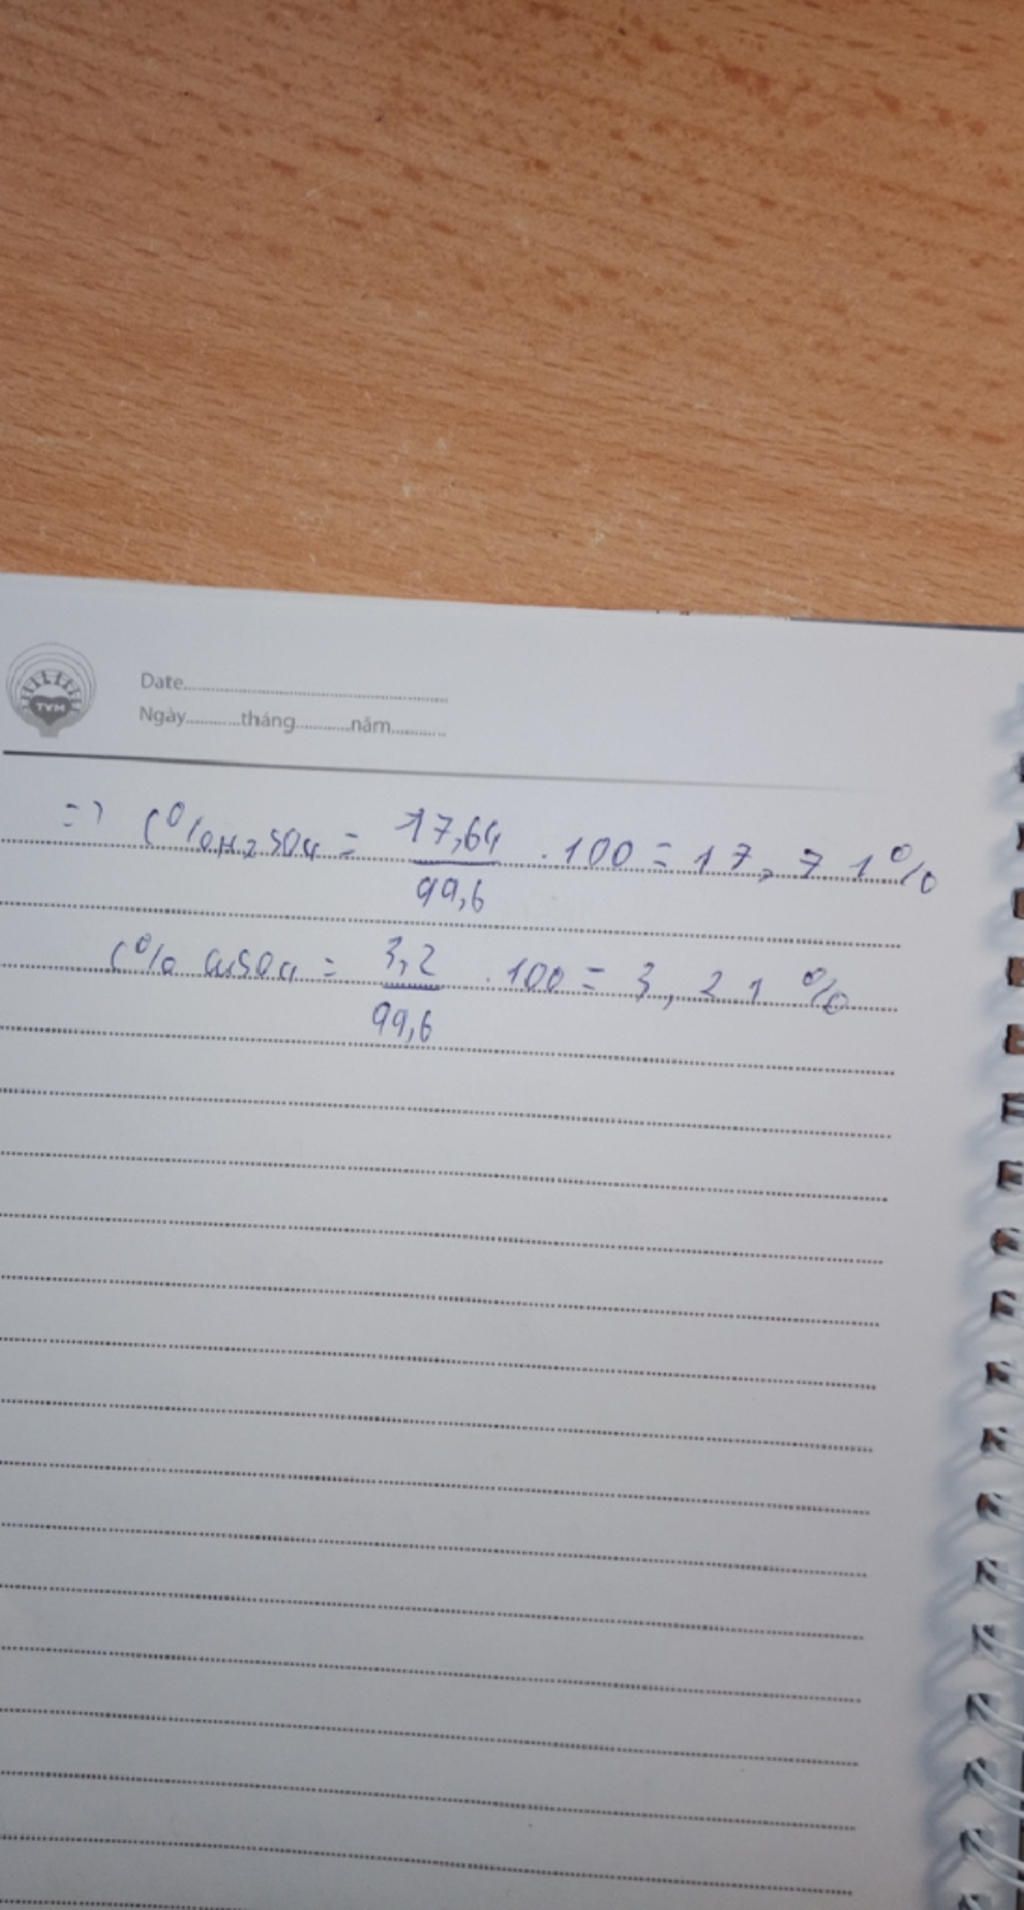 TYM
Date..............................
Ngày............tháng............năm............
=> C%H2SO4 = 17,64/99,6 . 100 = 17,71%
C% CuSO4 = 3,2/99,6 . 100 = 3,21%